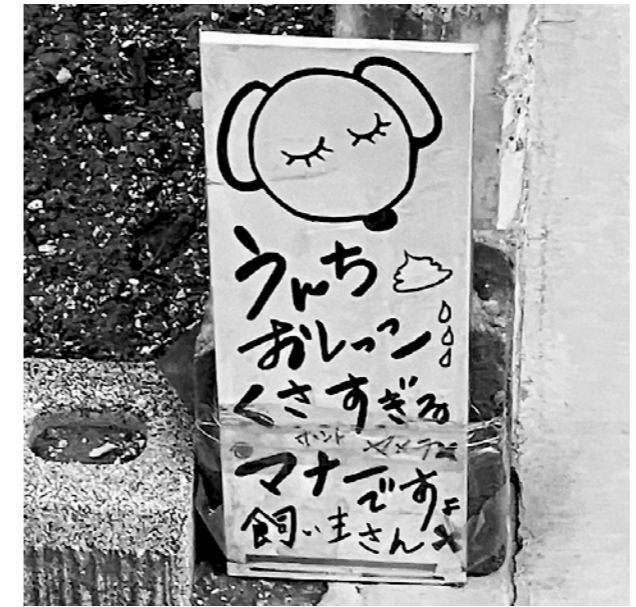 うんち
おしっこ
くさすぎる
ホント ヤメテ
マナーですよ
飼い主さん